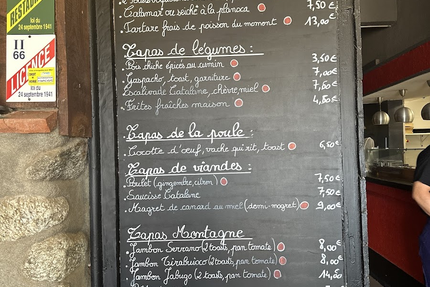 RESTAURANT
loi du
24 septembre 1941
II
66
LICENCE
loi du
24 septembre 1941
7,50
. Calamar ou seiche à la planxa 7,50 €
. Tartare frais de poisson du moment 13,00 €
Tapas de légumes :
. Pois chiche épicés au cumin 3,50 €
. Gaspacho, toast, garniture 7,00 €
. Escalivade Catalane, chèvre, miel 7,60 €
. Frites fraîches maison 4,80 €
Tapas de la poule :
. Cocotte d'œuf, vache qui rit, toast 6,50 €
Tapas de viandes :
. Poulet (gingembre, citron) 7,50 €
. Saucisse Catalane 7,50 €
. Magret de canard au miel (demi-magret) 9,00 €
Tapas Montagne
. Jambon Serrano (2 toasts, pan tomate) 8,00 €
. Jambon Tirabuixo (2 toasts, pan tomate) 8,00 €
. Jambon Jabugo (2 toasts, pan tomate) 14,60